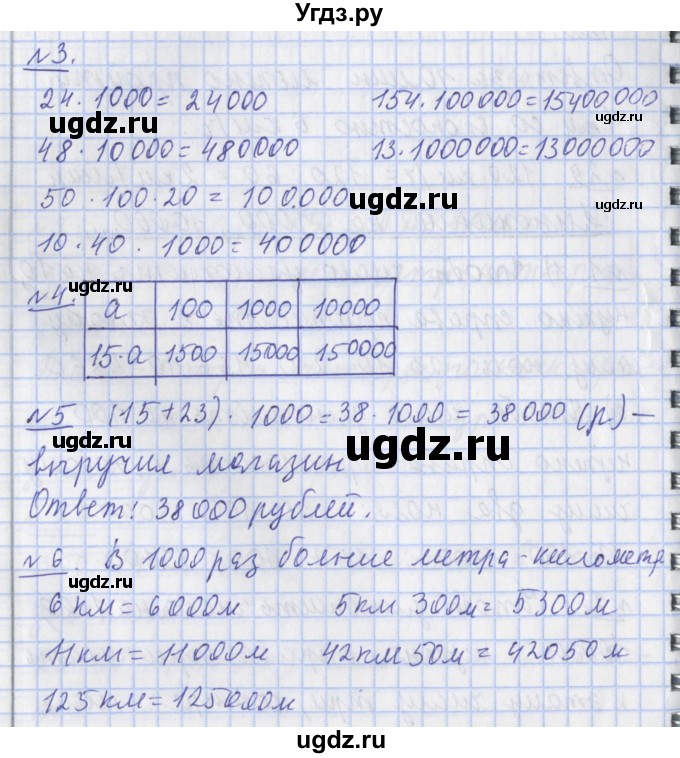 Угдз.ру
№3.
24 · 1000 = 24000 154 · 100000 = 15400000
ugdz.ru ugdz.ru
48 · 10000 = 480000 13 · 1000000 = 13000000
50 · 100 · 20 = 100000 ugdz.ru
10 · 40 · 1000 = 400000
ugdz.ru
№4. а 100 1000 10000
15·а 1500 15000 150000
№5 (15 + 23) · 1000 = 38 · 1000 = 38000 (р.) –
выручил магазин ugdz.ru
Ответ: 38000 рублей.
№6. В 1000 раз больше метра - километр
6 км = 6000м 5км 300м = 5300м
11км = 11000м 42км 50м = 42050м
125 км = 125000м
ugdz.ru
Угдз.ру